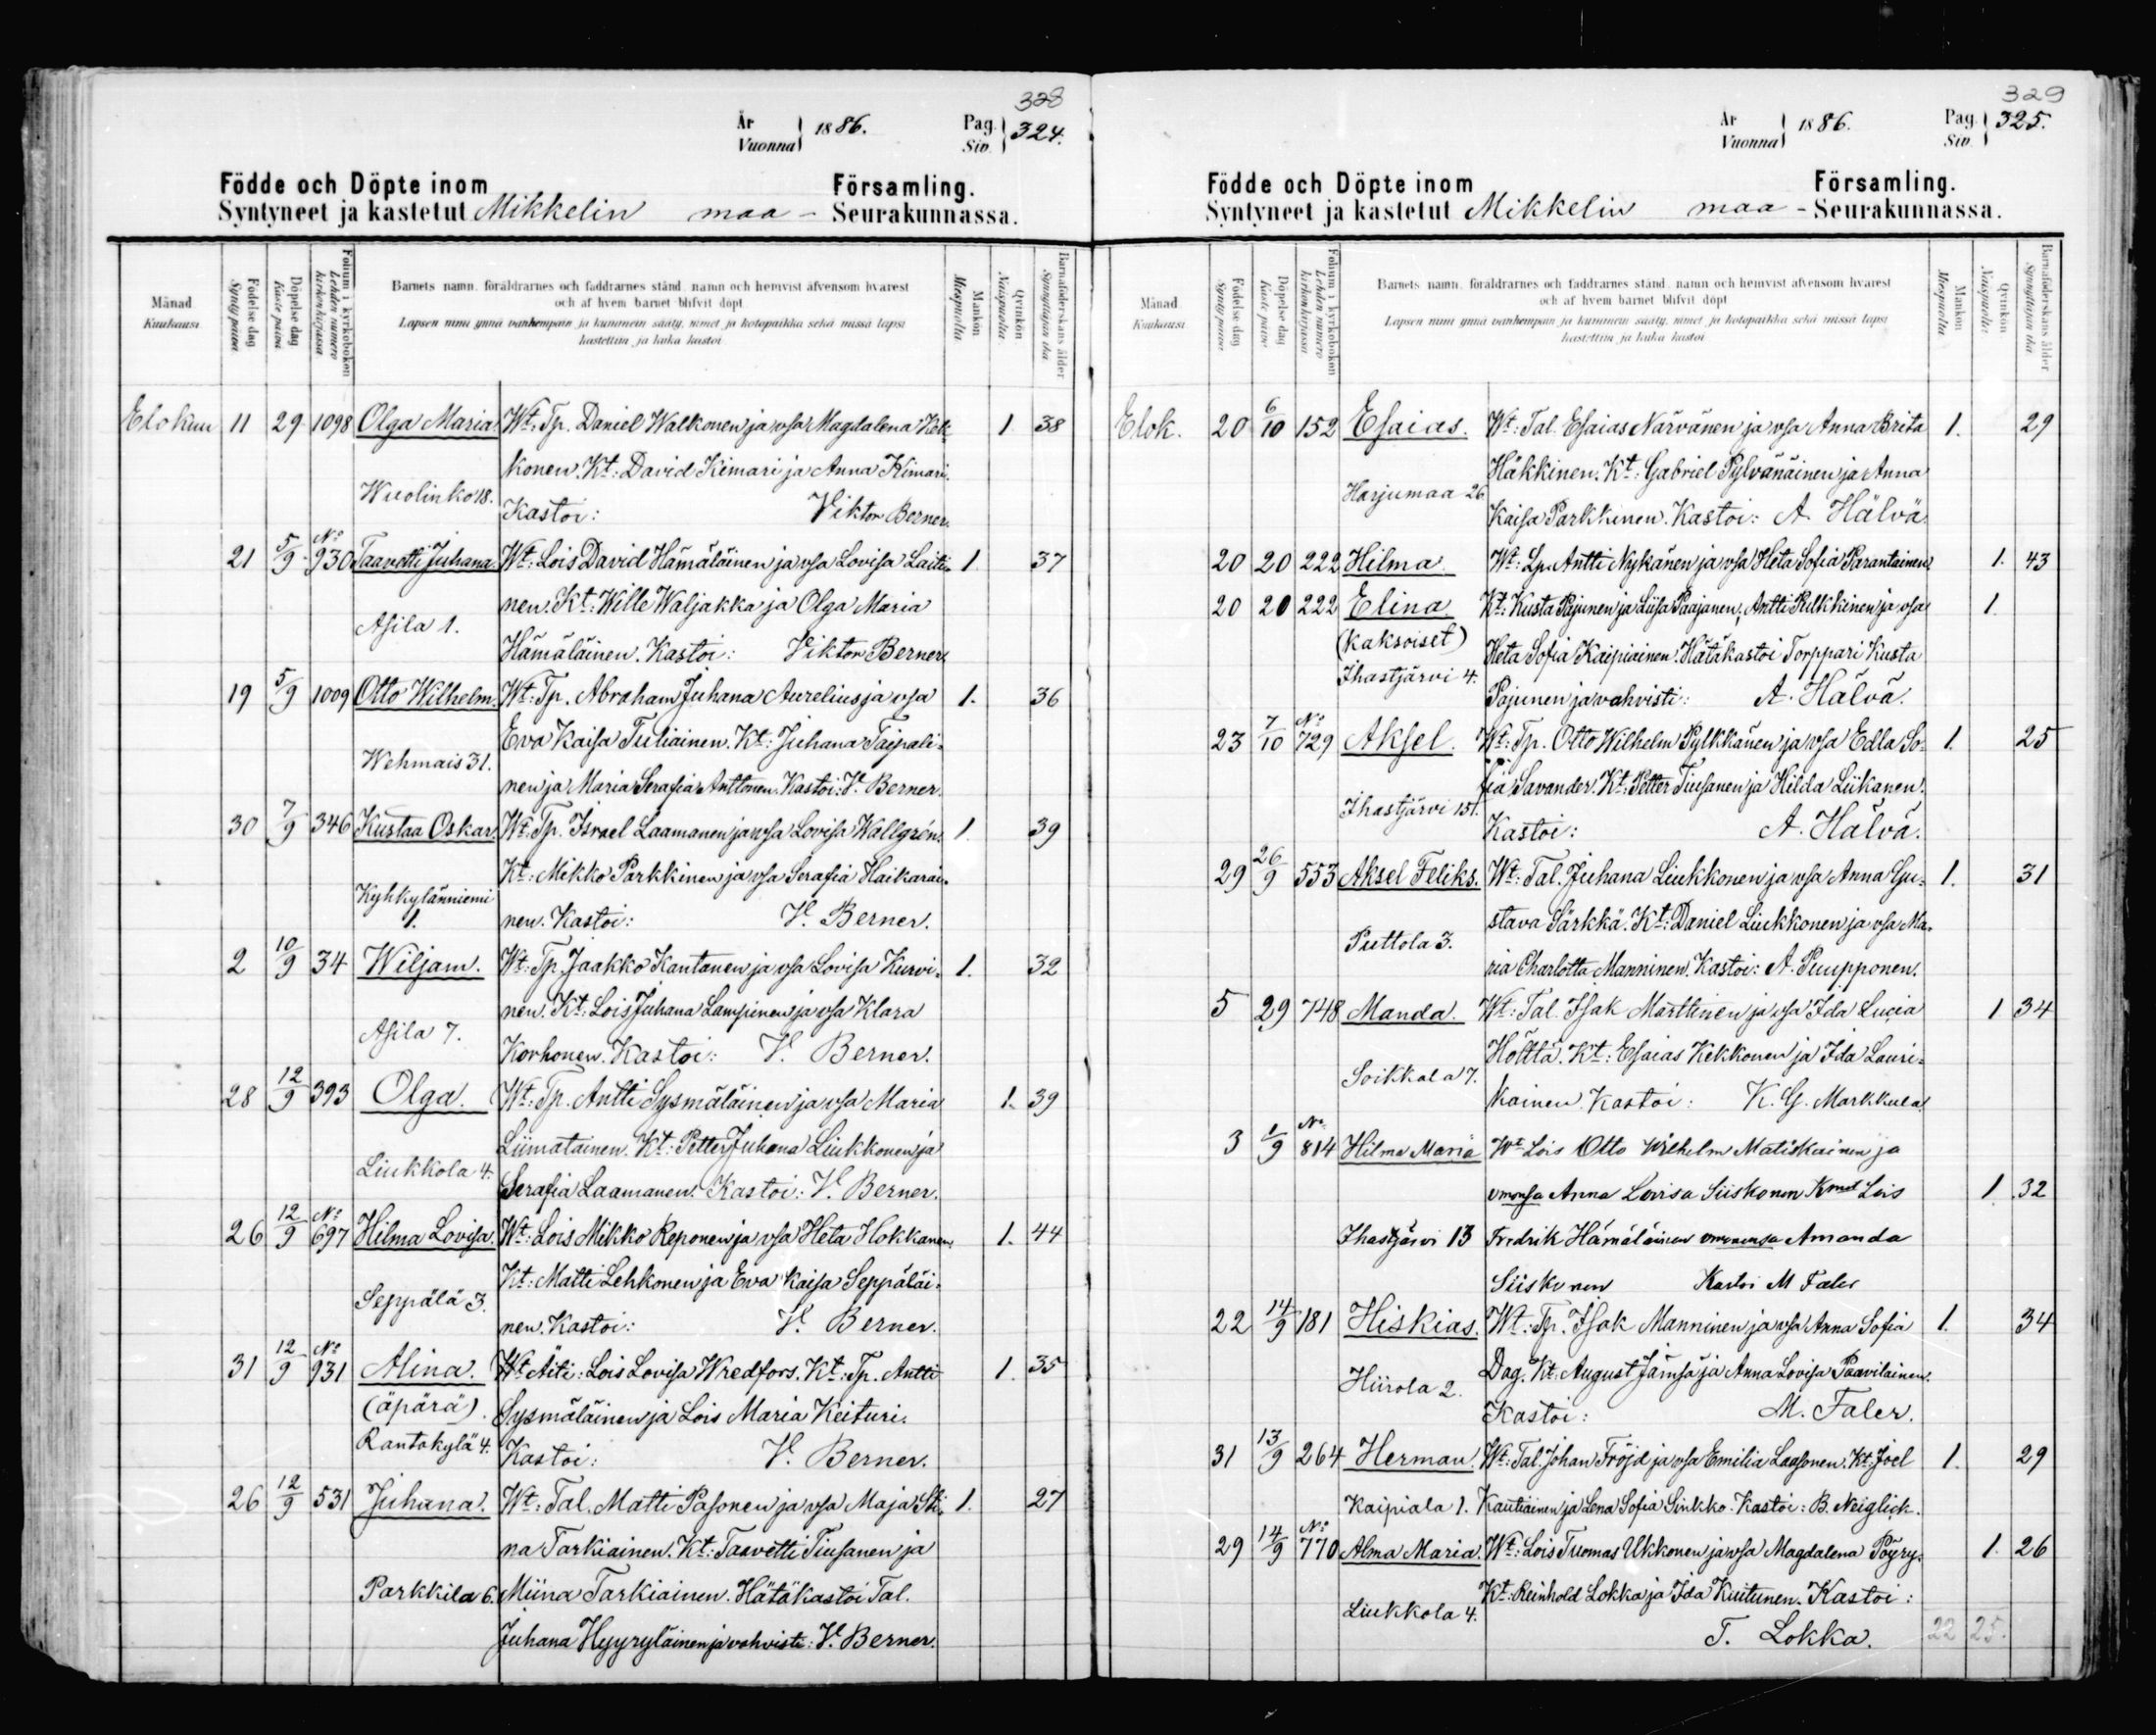 328
År
Vuonna
1886.
Pag.
Siv.
324.
Födde och Döpte inom Församling.
Syntyneet ja kastetut Mikkelin maa - Seurakunnassa.
Månad
Kuukausi
Födelse dag
Synty päivä
Döpelse dag
Kaste päivä
Folium i kyrkoboken
Lehden numero kirkonkirjassa
Barnets namn, föräldrarnes och faddrarnes stånd, namn och hemvist äfvensom hvarest
och af hvem barnet blifvit döpt
Lapsen nimi ynnä vanhempain ja kummein sääty, nimet ja kotopaikka sekä missä lapsi
kastettiin ja kuka kastoi
Mankön
Miespuolta
Qvinkön
Naispuolta
Barnaföderskans ålder
Synnyttäjän ikä
Elokuu 11 29 1098 Olga Maria Wt: Tp. Daniel Walkonen ja vsa Magdalena Kok- 1 38
konen. Kt: David Kimari ja Anna Kimari.
Wuolinko 18.
Kastoi: Viktor Berner.
21 5/9 No 930 Taavetti Juhana Wt: Lois David Hämäläinen ja vsa Lovisa Laiti- 1 37
nen. Kt: Wille Waljakka ja Olga Maria
Asila 1.
Hämäläinen. Kastoi: Viktor Berner.
19 5/9 1009 Otto Wilhelm. Wt: Tp. Abraham Juhana Aurelius ja vsa 1. 36
Eva Kaisa Tuliainen. Kt: Juhana Taipali-
Wehmais 31.
nen ja Maria Serafia Anttonen. Kastoi: V. Berner.
30 7/9 346 Kustaa Oskar. Wt: Tp. Israel Laamanen ja vsa Lovisa Wallgrén. 1. 39
Kt: Mikko Parkkinen ja vsa Serafia Haikarai-
Kyhkylänniemi
1.
nen. Kastoi: V. Berner.
2 10/9 34 Wiljam. Wt: Tp. Jaakko Kantanen ja vsa Lovisa Kurvi- 1. 32
nen. Kt: Lois Juhana Lampinen ja vsa Klara
Asila 7.
Korhonen. Kastoi: V. Berner.
28 12/9 393 Olga. Wt: Tp. Antti Sysmäläinen ja vsa Maria 1. 39
Liimatainen. Kt: Petter Juhana Liukkonen ja
Liukkola 4.
Serafia Laamanen. Kastoi: V. Berner.
26 12/9 No 697 Hilma Lovisa. Wt: Lois Mikko Reponen ja vsa Heta Hokkanen. 1. 44
Kt: Matti Lehkonen ja Eva Kaisa Seppäläi-
Seppälä 3.
nen. Kastoi: V. Berner.
31 12/9 No 931 Alina. Wt Äiti: Lois Lovisa Wredfors. Kt: Tp. Antti 1. 35
(äpärä).
Sysmäläinen ja Lois Maria Keituri.
Rantakylä 4.
Kastoi: V. Berner.
26 12/9 531 Juhana. Wt: Tal. Matti Pasonen ja vsa Maja Sti- 1. 27
na Tarkiainen. Kt: Taavetti Tiusanen ja
Parkkila 6. Miina Tarkiainen. Hätäkastoi Tal.
Juhana Hyyryläinen ja vahvisti: V. Berner.
329
År
Vuonna
1886.
Pag.
Siv.
325.
Födde och Döpte inom Församling.
Syntyneet ja kastetut Mikkelin maa - Seurakunnassa.
Månad
Kuukausi
Födelse dag
Synty päivä
Döpelse dag
Kaste päivä
Folium i kyrkoboken
Lehden numero kirkonkirjassa
Barnets namn, föräldrarnes och faddrarnes stånd, namn och hemvist äfvensom hvarest
och af hvem barnet blifvit döpt
Lapsen nimi ynnä vanhempain ja kummein sääty, nimet ja kotopaikka sekä missä lapsi
kastettiin ja kuka kastoi
Mankön
Miespuolta
Qvinkön
Naispuolta
Barnaföderskans ålder
Synnyttäjän ikä
Elok. 20 6/10 152 Esaias. Wt: Tal. Esaias Närvänen ja vsa Anna Brita 1. 29
Häkkinen. Kt: Gabriel Pylvänäinen ja Anna
Harjumaa 26
Kaisa Parkkinen. Kastoi: A. Hälvä.
20 20 222 Hilma. Wt: Lp. Antti Nykänen ja vsa Heta Sofia Parantainen 1. 43
20 20 222 Elina Kt: Kusta Pajunen ja Liisa Paajanen, Antti Pulkkinen ja vsa 1.
(kaksoiset)
Heta Sofia Kaipiainen. Hätäkastoi Torppari Kusta
Ihastjärvi 4.
Pajunen ja vahvisti: A. Hälvä.
23 7/10 No 729 Aksel. Wt: Tp. Otto Wilhelm Pylkkänen ja vsa Edla So- 1. 25
fia Savander. Kt: Petter Tiusanen ja Hilda Liikanen.
Ihastjärvi 15.
Kastoi: A. Hälvä.
29 26/9 553 Aksel Feliks. Wt: Tal. Juhana Liukkonen ja vsa Anna Gu- 1. 31
stava Särkkä. Kt: Daniel Liukkonen ja vsa Ma-
Puttola 3.
ria Charlotta Manninen. Kastoi: A. Puupponen.
5 29 748 Manda. Wt: Tal. Isak Marttinen ja vsa Ida Lucia 1 34
Hölttä. Kt: Esaias Kekkonen ja Ida Lauri-
Soikkala 7.
kainen. Kastoi: K. G. Markkula
3 1/9 No 814 Hilma Maria Wt Lois Otto Wilhelm Matiskainen ja
vmonsa Anna Lovisa Siiskonen Kmit Lois 1 32
Ihastjärvi 13 Fredrik Hämäläinen vmonsa Amanda
Siiskonen Kastoi M Faler
22 14/9 181 Hiskias. Wt: Tp. Isak Manninen ja vsa Anna Sofia 1. 34
Dag. Kt: August Jämsä ja Anna Lovisa Paavilainen.
Hiirola 2.
Kastoi: M. Faler.
31 13/9 264 Herman. Wt: Tal. Johan Fröjd ja vsa Emilia Laasonen. Kt: Joel 1. 29
Kaipiala 1. Kautiainen ja Lena Sofia Sinkko. Kastoi: B. Neiglick.
29 14/9 No 770 Alma Maria. Wt: Lois Tuomas Ukkonen ja vsa Magdalena Pöyry. 1. 26
Kt: Reinhold Lokka ja Ida Kuitunen. Kastoi:
Liukkola 4.
T. Lokka. 22 25.